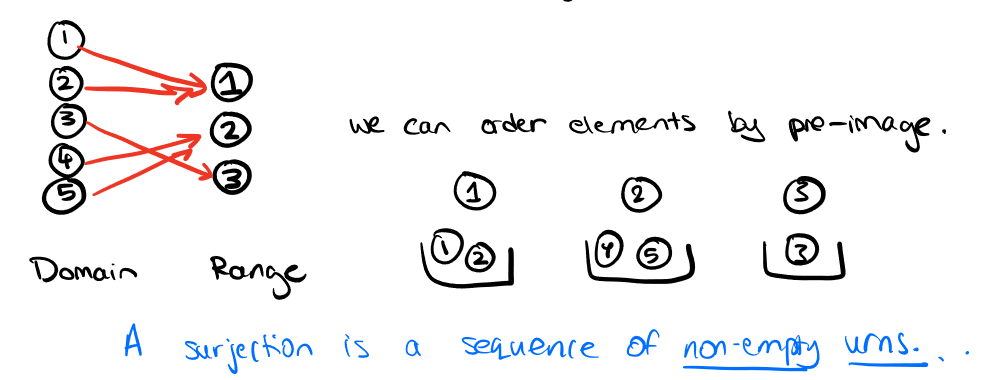 1
2
3
4
5
1
2
3
Domain Range
we can order elements by pre-image.
1 2 3
1 2 4 5 3
A surjection is a sequence of non-empty urns...